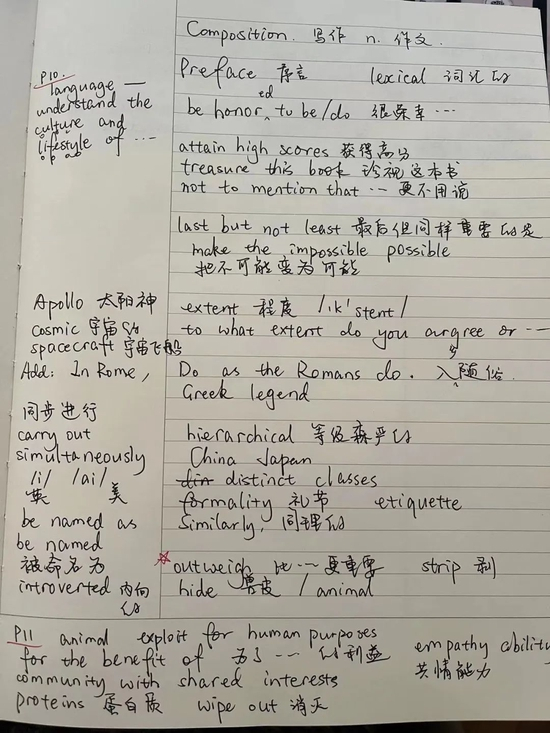 Composition. 写作 n. 作文.
Preface 序言 lexical 词汇的
P10.
language —
understand the
culture and
lifestyle of ...
be honored to be/do 很荣幸 ...
attain high scores 获得高分
treasure this book 珍视这本书
not to mention that ... 更不用说
last but not least 最后但同样重要的是
make the impossible possible
把不可能变为可能
Apollo 太阳神
extent 程度 /ik'stent/
cosmic 宇宙的
to what extent do you argree or ...
spacecraft 宇宙飞船
Add: In Rome, Do as the Romans do. 入乡随俗.
Greek legend
同步进行
carry out
simultaneously
/i/ /ai/
英 美
hierarchical 等级森严的
China Japan
distinct classes
formality 礼节 etiquette
be named as
Similarly, 同理的
be named
被命名为
outweigh 比 ... 更重要 strip 剥
introverted 内向的
hide 兽皮 / animal
P11 animal exploit for human purposes
for the benefit of 为了 ... 的利益 empathy ability
共情能力
community with shared interests
proteins 蛋白质 wipe out 消灭